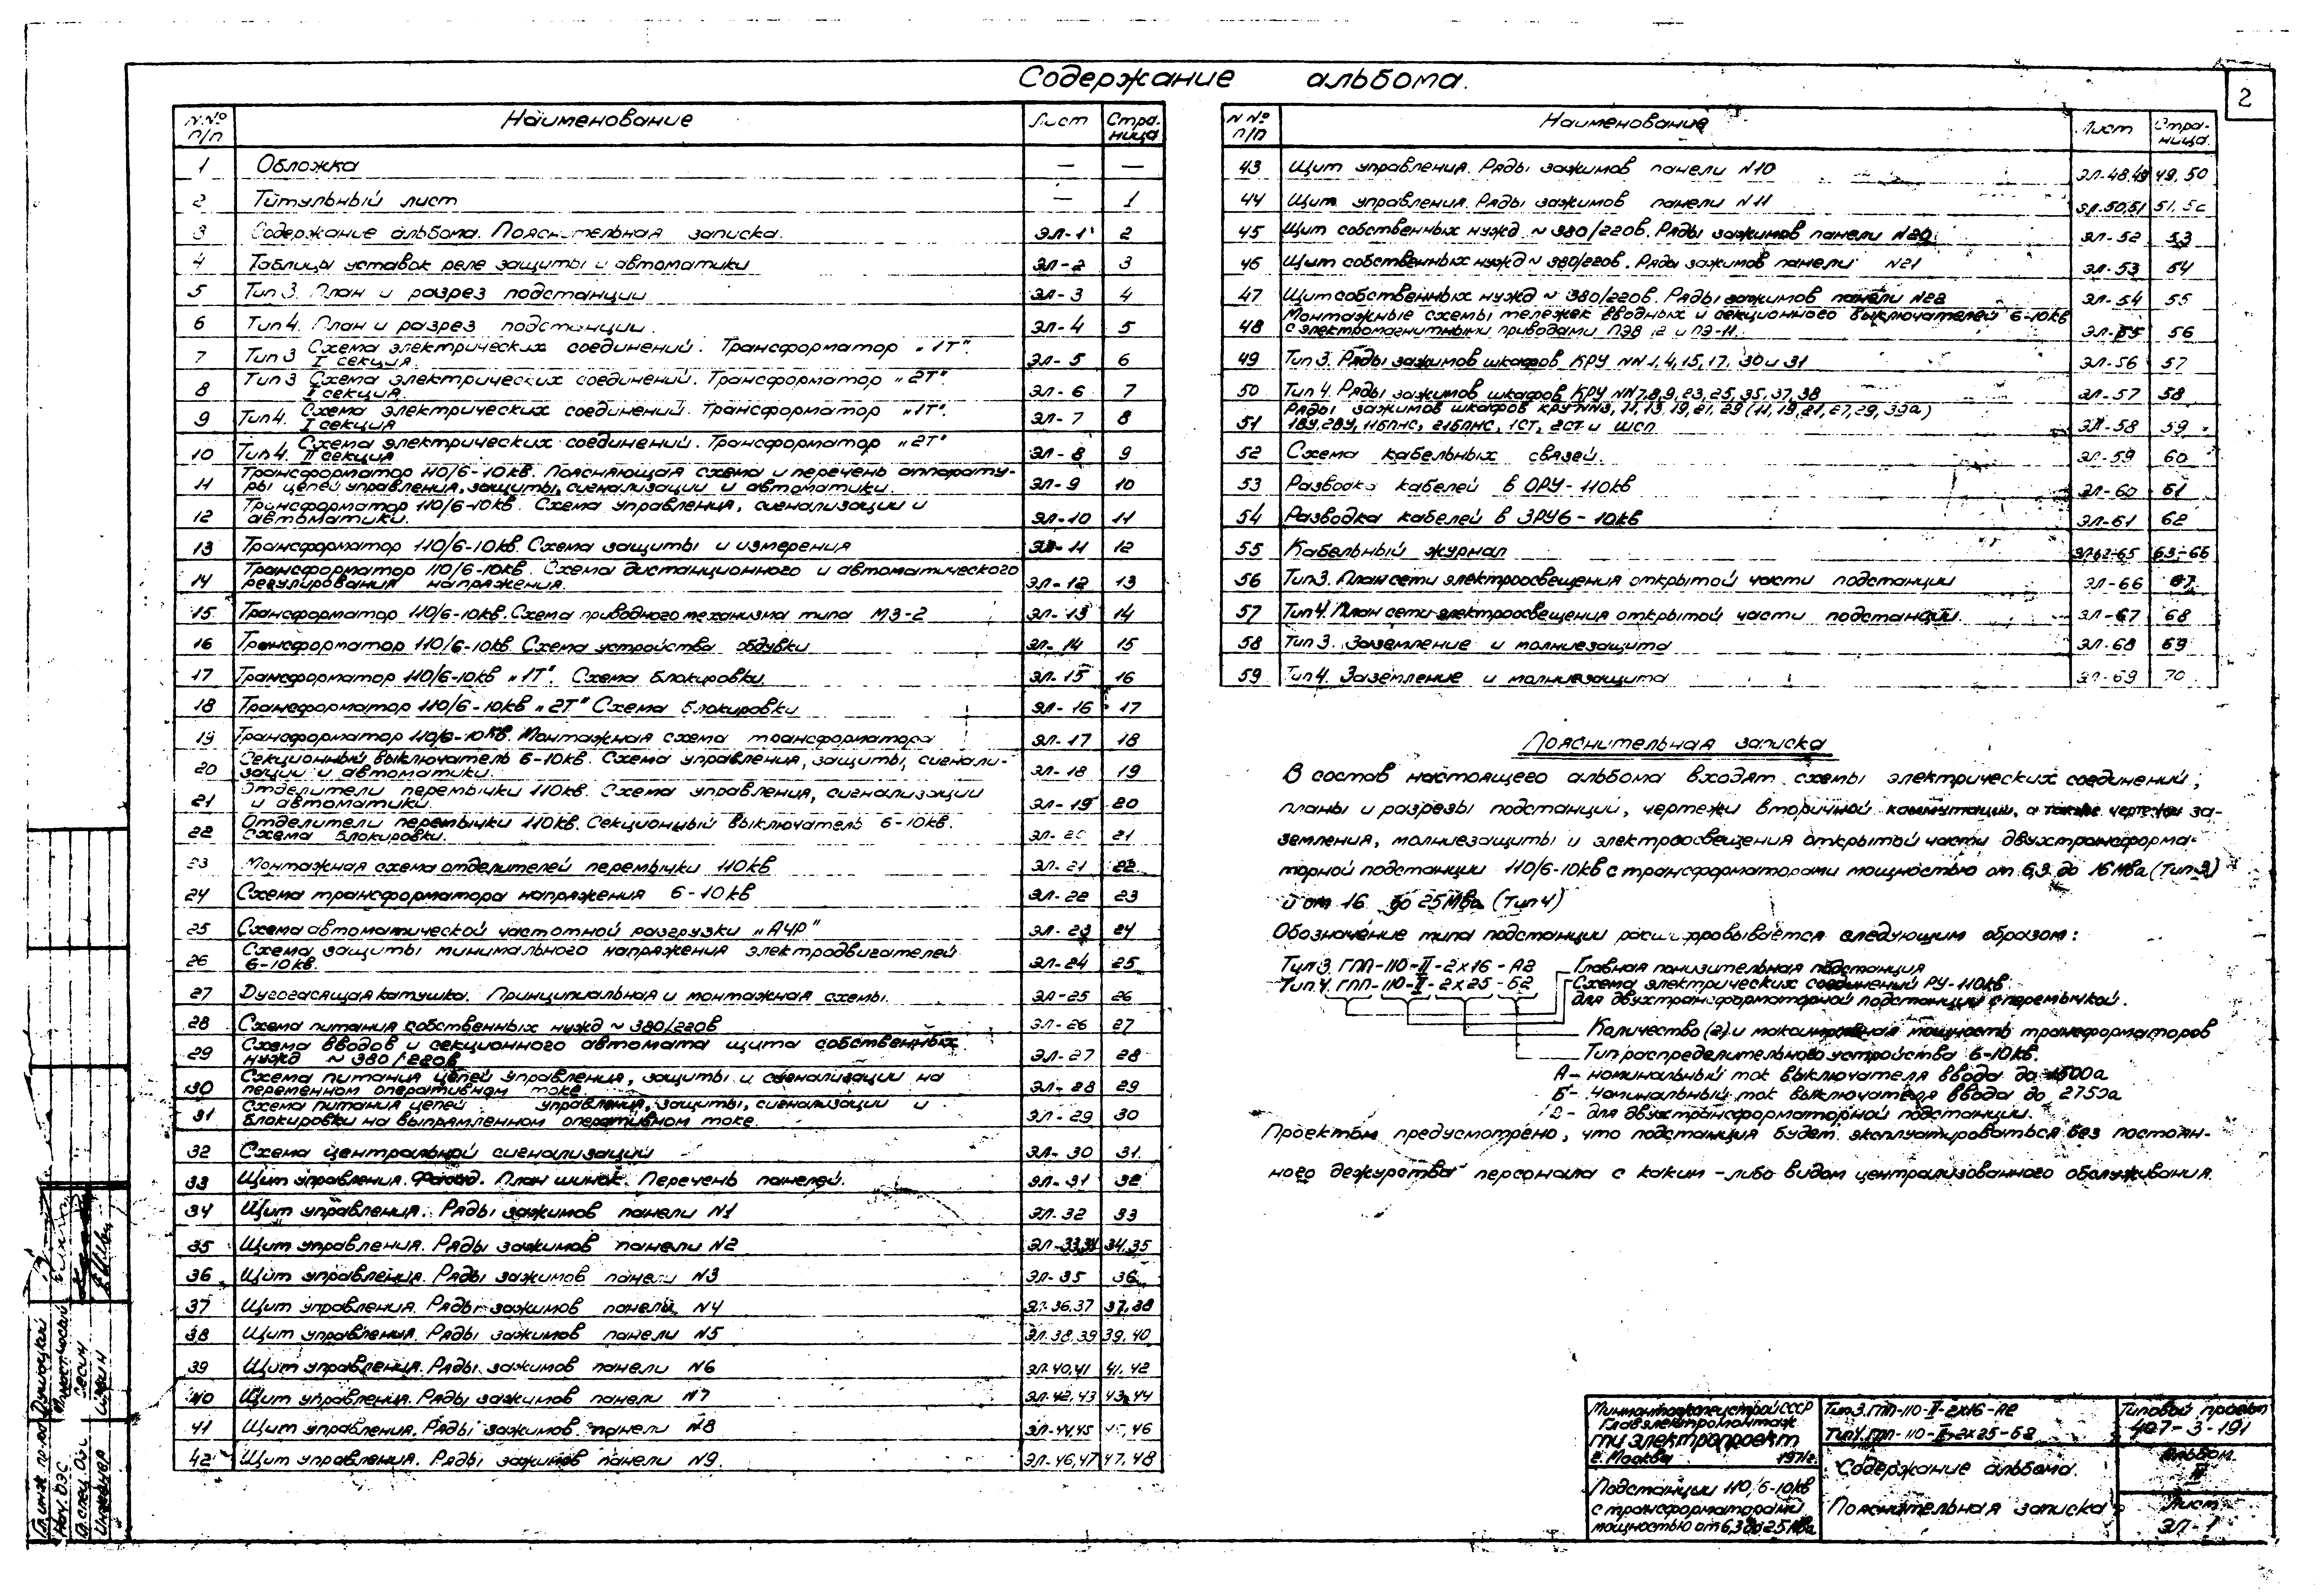 2
Содержание альбома.
N.Nº п/п Наименование Лист Стра-ница
1 Обложка — —
2 Титульный лист — 1
3 Содержание альбома. Пояснительная записка. ЭЛ-1 2
4 Таблицы уставок реле защиты и автоматики ЭЛ-2 3
5 Тип 3. План и разрез подстанции ЭЛ-3 4
6 Тип 4. План и разрез подстанции. ЭЛ-4 5
7 Тип 3 Схема электрических соединений. Трансформатор „1Т". I секция. ЭЛ-5 6
8 Тип 3 Схема электрических соединений. Трансформатор „2Т". I секция. ЭЛ-6 7
9 Тип 4. Схема электрических соединений. Трансформатор „1Т". I секция ЭЛ-7 8
10 Тип 4. Схема электрических соединений. Трансформатор „2Т" II секция ЭЛ-8 9
11 Трансформатор 110/6-10кв. Поясняющая схема и перечень аппарату-
ры цепей управления, защиты, сигнализации и автоматики. ЭЛ-9 10
12 Трансформатор 110/6-10кв. Схема управления, сигнализации и
автоматики. ЭЛ-10 11
13 Трансформатор 110/6-10кв. Схема защиты и измерения ЭЛ-11 12
14 Трансформатор 110/6-10кв. Схема дистанционного и автоматического
регулирования напряжения. ЭЛ-12 13
15 Трансформатор 110/6-10кв. Схема приводного механизма типа МЗ-2 ЭЛ-13 14
16 Трансформатор 110/6-10кв. Схема устройства обдувки ЭЛ-14 15
17 Трансформатор 110/6-10кв „1Т". Схема блокировки. ЭЛ-15 16
18 Трансформатор 110/6-10кв „2Т" Схема блокировки ЭЛ-16 17
19 Трансформатор 110/6-10кв. Монтажная схема трансформатора ЭЛ-17 18
20 Секционный выключатель 6-10кв. Схема управления, защиты, сигнали-
зации и автоматики. ЭЛ-18 19
21 Отделители перемычки 110кв. Схема управления, сигнализации
и автоматики. ЭЛ-19 20
22 Отделители перемычки 110кв. Секционный выключатель 6-10кв.
Схема блокировки. ЭЛ-20 21
23 Монтажная схема отделителей перемычки 110кв ЭЛ-21 22
24 Схема трансформатора напряжения 6-10кв ЭЛ-22 23
25 Схема автоматической частотной разгрузки „АЧР" ЭЛ-23 24
26 Схема защиты минимального напряжения электродвигателей
6-10кв. ЭЛ-24 25
27 Дугогасящая катушка. Принципиальная и монтажная схемы. ЭЛ-25 26
28 Схема питания собственных нужд ~ 380/220в ЭЛ-26 27
29 Схема вводов и секционного автомата щита собственных
нужд ~ 380/220в ЭЛ-27 28
30 Схема питания цепей управления, защиты и сигнализации на
переменном оперативном токе. ЭЛ-28 29
31 Схема питания цепей управления, защиты, сигнализации и
блокировки на выпрямленном оперативном токе. ЭЛ-29 30
32 Схема центральной сигнализации ЭЛ-30 31.
33 Щит управления. Фасад. План шинок. Перечень панелей. ЭЛ-31 32
34 Щит управления. Ряды зажимов панели N1 ЭЛ-32 33
35 Щит управления. Ряды зажимов панели N2 ЭЛ-33,34 34,35
36 Щит управления. Ряды зажимов панели N3 ЭЛ-35 36
37 Щит управления. Ряды зажимов панели N4 ЭЛ-36,37 37,38
38 Щит управления. Ряды зажимов панели N5 ЭЛ-38,39 39,40
39 Щит управления. Ряды зажимов панели N6 ЭЛ-40,41 41,42
40 Щит управления. Ряды зажимов панели N7 ЭЛ-42,43 43,44
41 Щит управления. Ряды зажимов панели N8 ЭЛ-44,45 46
42 Щит управления. Ряды зажимов панели N9. ЭЛ-46,47 47,48
N Nº п/п Наименование Лист Стра-ница.
43 Щит управления. Ряды зажимов панели N10 ЭЛ-48,49 49,50
44 Щит управления. Ряды зажимов панели N11 ЭЛ-50,51 51,52
45 Щит собственных нужд ~ 380/220в. Ряды зажимов панели N20 ЭЛ-52 53
46 Щит собственных нужд ~ 380/220в. Ряды зажимов панели N21 ЭЛ-53 54
47 Щит собственных нужд ~ 380/220в. Ряды зажимов панели N22 ЭЛ-54 55
48 Монтажные схемы тележек вводных и секционного выключателей 6-10кв
с электромагнитными приводами и ПЭ-11. ЭЛ-55 56
49 Тип 3. Ряды зажимов шкафов КРУ NN 1, 4, 15, 17, 30 и 31 ЭЛ-56 57
50 Тип 4. Ряды зажимов шкафов КРУ NN 7, 8, 9, 23, 25, 35, 37, 38 ЭЛ-57 58
51 Ряды зажимов шкафов КРУ NN3, 11, 13, 19, 21, 29 (11, 19, 21, 27, 29, 39а)
1ВУ, 2ВУ, 11БПНС, 21БПНС, 1СТ, 2СТ и ШСП ЭЛ-58 59
52 Схема кабельных связей. ЭЛ-59 60
53 Разводка кабелей в ОРУ-110кв ЭЛ-60 61
54 Разводка кабелей в ЗРУ6-10кв ЭЛ-61 62
55 Кабельный журнал ЭЛ62÷65 63÷66
56 Тип 3. План сети электроосвещения открытой части подстанции ЭЛ-66 67
57 Тип 4. План сети электроосвещения открытой части подстанции. ЭЛ-67 68
58 Тип 3. Заземление и молниезащита ЭЛ-68 69
59 Тип 4. Заземление и молниезащита ЭЛ-69 70
Пояснительная записка
В состав настоящего альбома входят схемы электрических соединений,
планы и разрезы подстанций, чертежи вторичной коммутации, а также чертежи за-
земления, молниезащиты и электроосвещения открытой части двухтрансформа-
торной подстанции 110/6-10кв с трансформаторами мощностью от 6,3 до 16 Мва (Тип 3)
и от 16 до 25 Мва (Тип 4)
Обозначение типа подстанции расшифровывается следующим образом:
Тип 3. ГПП-110-II-2х16-А2
Тип 4. ГПП-110-II-2х25-Б2
Главная понизительная подстанция
Схема электрических соединений РУ-110кв
для двухтрансформаторной подстанции с перемычкой.
Количество (2) и максимальная мощность трансформаторов
Тип распределительного устройства 6-10кв.
А- номинальный ток выключателя ввода до 1500а
Б- номинальный ток выключателя ввода до 2750а
2- для двухтрансформаторной подстанции.
Проектом предусмотрено, что подстанция будет эксплуатироваться без постоян-
ного дежурства персонала с каким-либо видом централизованного обслуживания.
Минмонтажспецстрой СССР
Главэлектромонтаж
ГПИ Электропроект
г. Москва 1971г.
Подстанции 110/6-10кв
с трансформаторами
мощностью от 6,3 до 25 Мва
Тип 3. ГПП-110-II-2х16-А2
Тип 4. ГПП-110-II-2х25-Б2
Содержание альбома.
Пояснительная записка
Типовой проект
407-3-191
Альбом
Лист
ЭЛ-1
Гл. инж. пр.
Нач. ОЭС
Гл. спец. ОЭС Сесин
Инженер